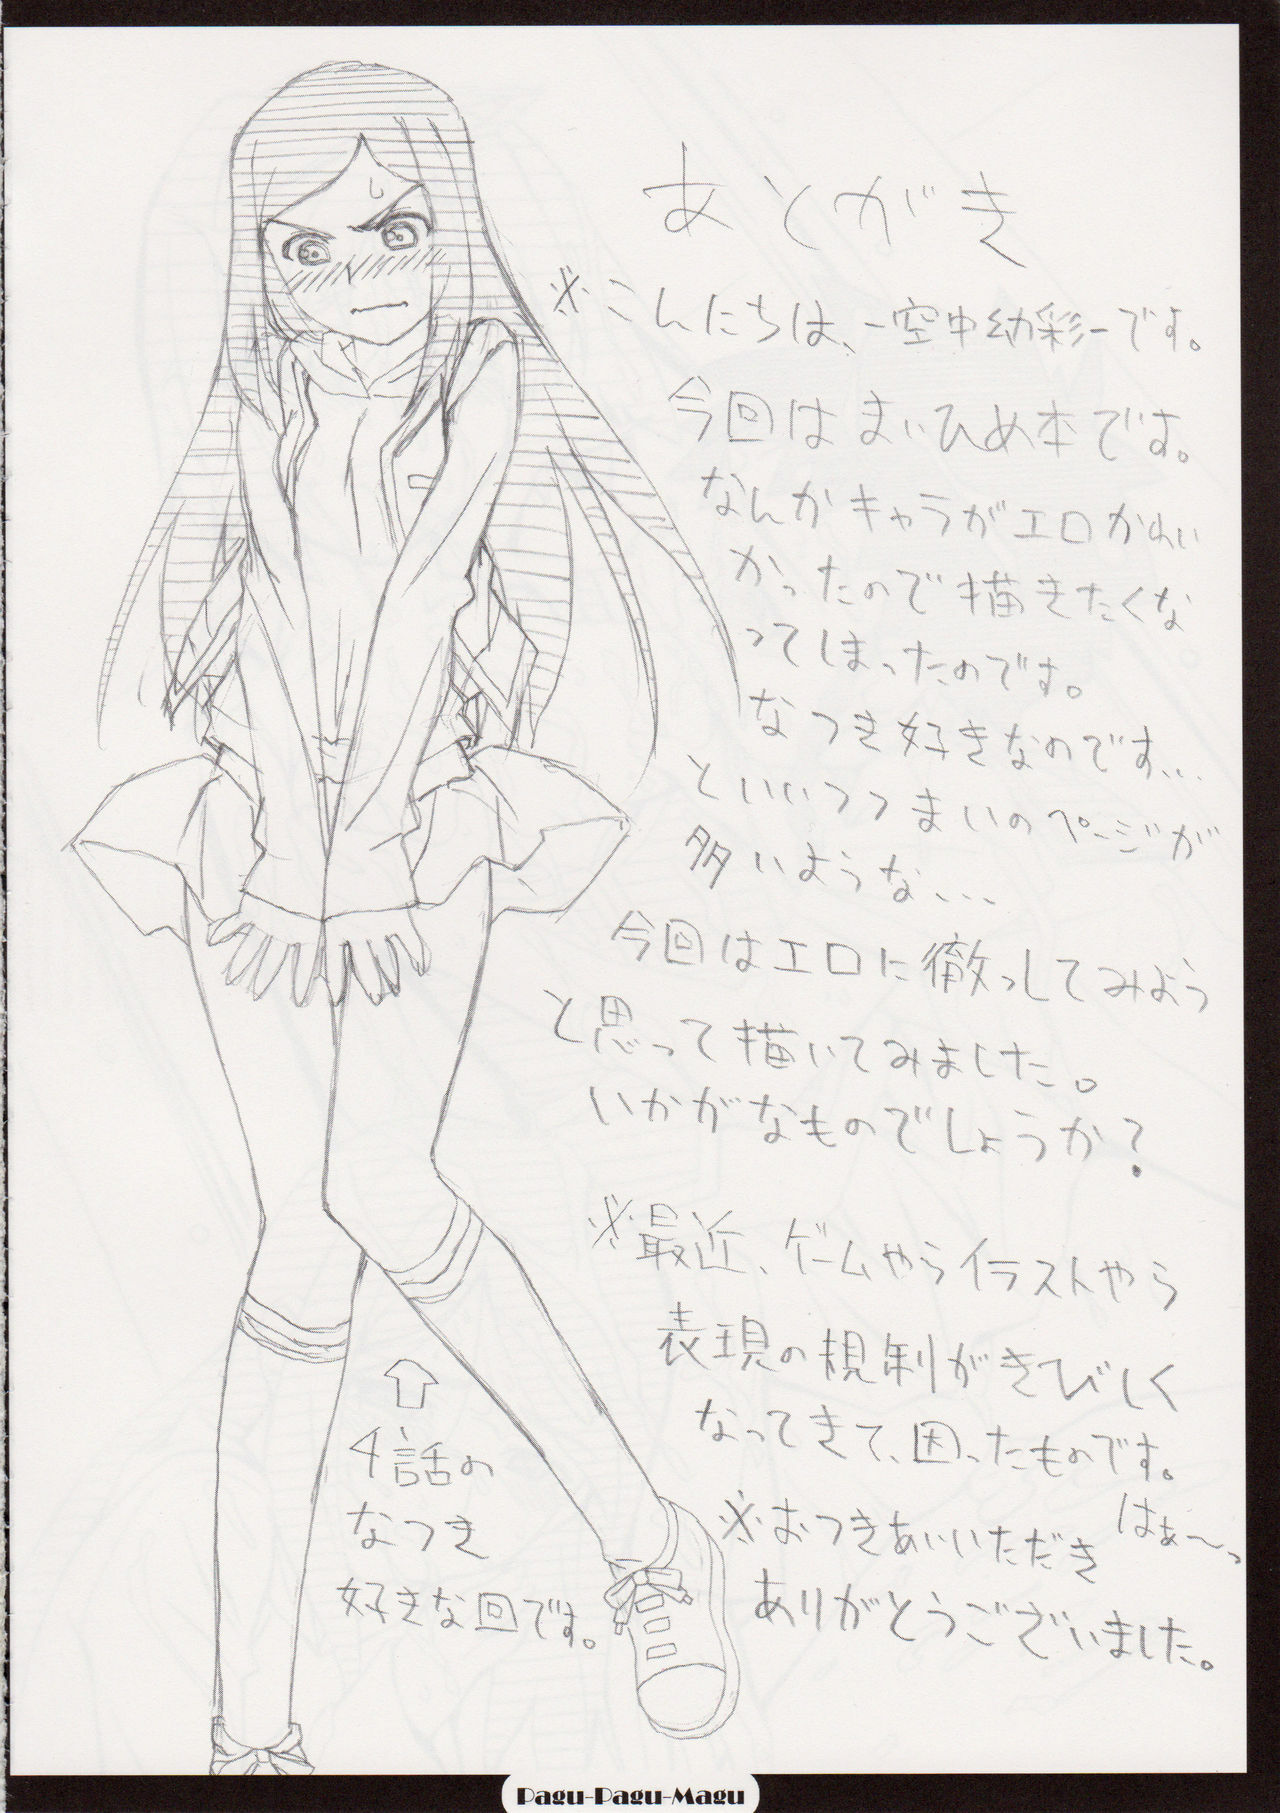 あとがき
※こんにちは、-空中幼彩-です。
今回はまいひめ本です。
なんかキャラがエロかわい
かったので描きたくな
ってしまったのです。
なつき好きなのです...
といいつつまいのページが
多いような...
今回はエロに徹っしてみよう
と思って描いてみました。
いかがなものでしょうか?
※最近、ゲームやらイラストやら
表現の規制がきびしく
なってきて、困ったものです。
はぁ〜っ
※おつきあいいただき
ありがとうございました。
4話の
なつき
好きな回です。
Pagu-Pagu-Magu